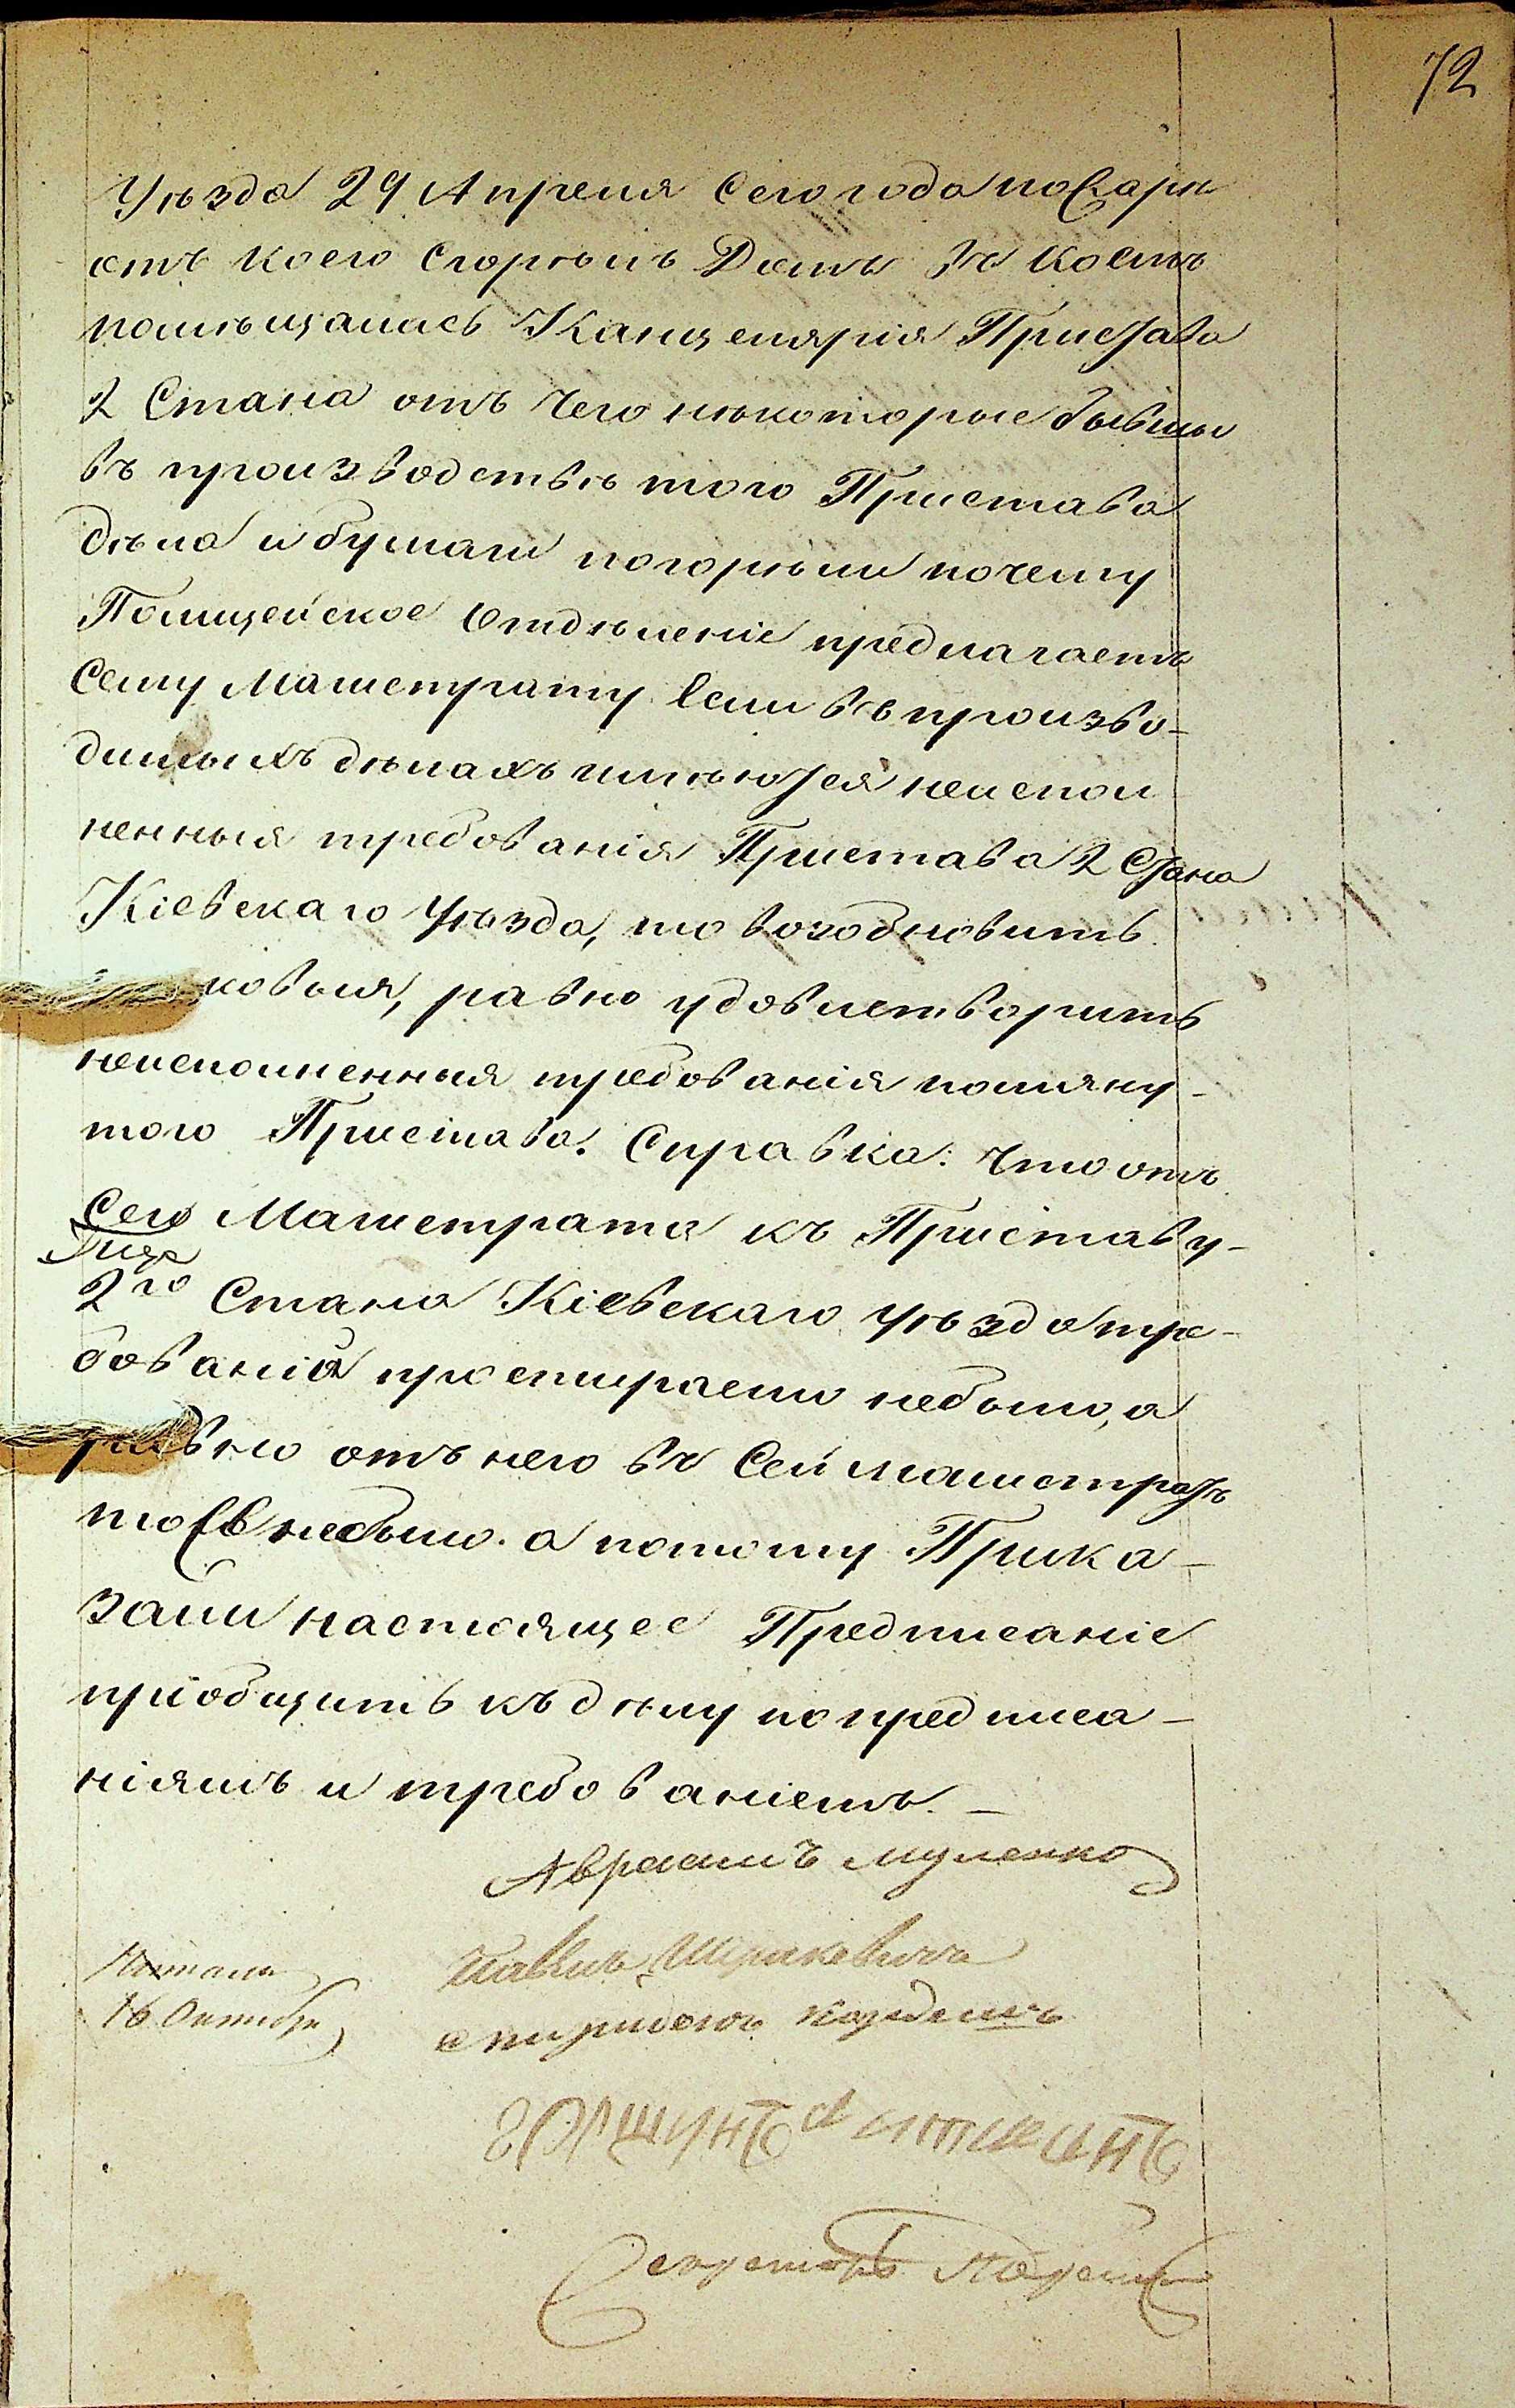 72
Уѣзда 29 Апреля сего года пожарѣ
отъ коего сгорѣлъ Домъ въ коемъ
помѣщалась Канцелярія Пристава
2 Стана отъ чего нѣкоторые бывшы
въ производствѣ того Пристава
дѣла и бумаги погорѣли почему
Полицейское Отдѣленіе предлагаетъ
сему Магистрату если въ произво-
димыхъ дѣлахъ имѣются неиспол
ненныя требованія Пристава 2 Стана
Кіевскаго Уѣзда, то возобновить
ковыя, равно удовлетворить
неисполненныя требованія помяну-
того Пристава. Справка: что отъ
сего Магистрата къ Приставу-
2го Стана Кіевскаго уѣзда тре-
бованій простираемо небыло, а
равно отъ него въ Сей магистратъ
небыло. а потому Прика-
зали настоящее Предписаніе
пріобщить къ дѣлу по предписа-
ніямъ и требованіемъ. –
Авраамъ Муленко
Павелъ
Читалъ
16 Октября
спиридонъ
Секретарь